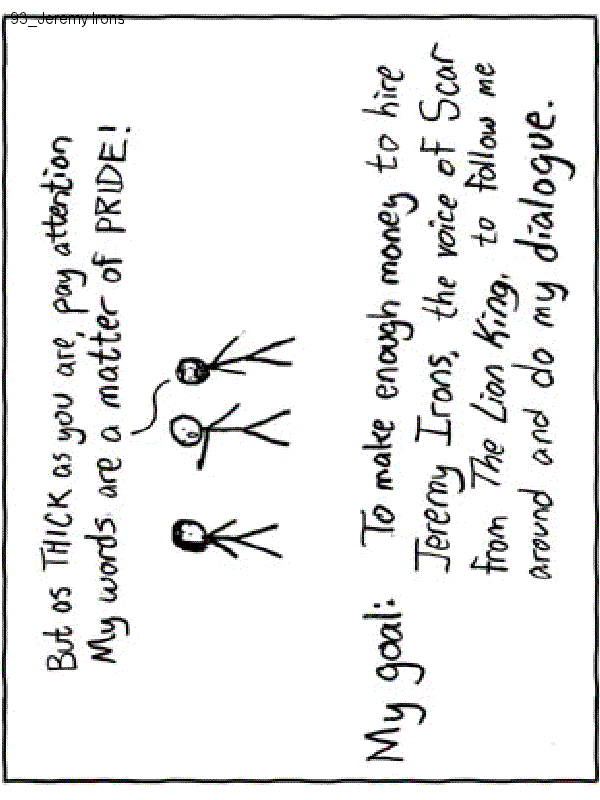 93_Jeremy Irons
But as THICK as you are, pay attention
My words are a matter of PRIDE!
My goal: To make enough money to hire
Jeremy Irons, the voice of Scar
from The Lion King, to follow me
around and do my dialogue.